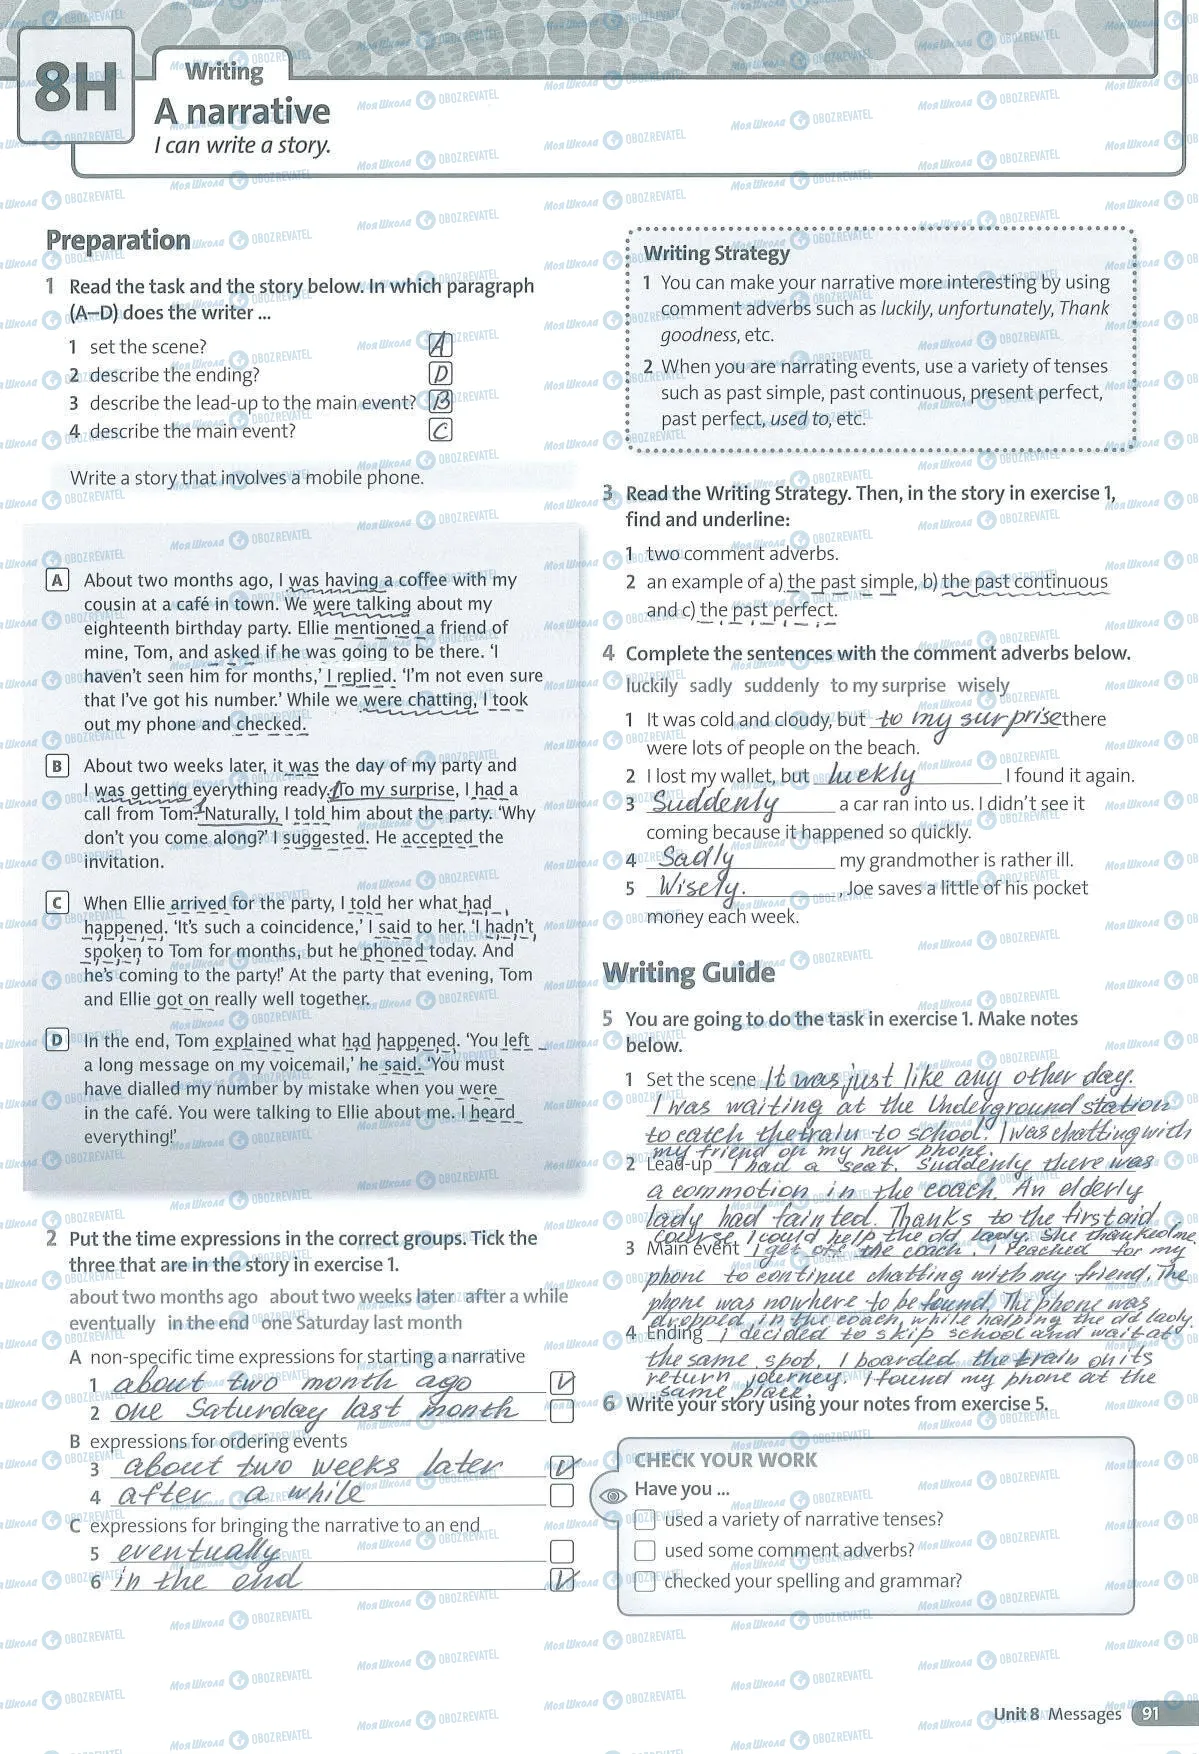 8H
Writing
A narrative
I can write a story.
Preparation
1 Read the task and the story below. In which paragraph
(A–D) does the writer ...
1 set the scene? A
2 describe the ending? D
3 describe the lead-up to the main event? B
4 describe the main event? C
Write a story that involves a mobile phone.
A About two months ago, I was having a coffee with my
cousin at a café in town. We were talking about my
eighteenth birthday party. Ellie mentioned a friend of
mine, Tom, and asked if he was going to be there. ‘I
haven’t seen him for months,’ I replied. ‘I’m not even sure
that I’ve got his number.’ While we were chatting, I took
out my phone and checked.
B About two weeks later, it was the day of my party and
I was getting everything ready. To my surprise, I had a
call from Tom. Naturally, I told him about the party. ‘Why
don’t you come along?’ I suggested. He accepted the
invitation.
C When Ellie arrived for the party, I told her what had
happened. ‘It’s such a coincidence,’ I said to her. ‘I hadn’t
spoken to Tom for months, but he phoned today. And
he’s coming to the party!’ At the party that evening, Tom
and Ellie got on really well together.
D In the end, Tom explained what had happened. ‘You left
a long message on my voicemail,’ he said. ‘You must
have dialled my number by mistake when you were
in the café. You were talking to Ellie about me. I heard
everything!’
2 Put the time expressions in the correct groups. Tick the
three that are in the story in exercise 1.
about two months ago about two weeks later after a while
eventually in the end one Saturday last month
A non-specific time expressions for starting a narrative
1 about two month ago V
2 one Saturday last month
B expressions for ordering events
3 about two weeks later V
4 after a while
C expressions for bringing the narrative to an end
5 eventually
6 in the end V
Writing Strategy
1 You can make your narrative more interesting by using
comment adverbs such as luckily, unfortunately, Thank
goodness, etc.
2 When you are narrating events, use a variety of tenses
such as past simple, past continuous, present perfect,
past perfect, used to, etc.
3 Read the Writing Strategy. Then, in the story in exercise 1,
find and underline:
1 two comment adverbs.
2 an example of a) the past simple, b) the past continuous
and c) the past perfect.
4 Complete the sentences with the comment adverbs below.
luckily sadly suddenly to my surprise wisely
1 It was cold and cloudy, but to my surprise there
were lots of people on the beach.
2 I lost my wallet, but luckly I found it again.
3 Suddenly a car ran into us. I didn’t see it
coming because it happened so quickly.
4 Sadly my grandmother is rather ill.
5 Wisely. , Joe saves a little of his pocket
money each week.
Writing Guide
5 You are going to do the task in exercise 1. Make notes
below.
1 Set the scene It was just like any other day.
I was waiting at the Underground station
to catch the train to school. I was chatting with
my friend on my new phone.
2 Lead-up I had a seat. Suddenly there was
a commotion in the coach. An elderly
lady had fainted. Thanks to the first aid
course I could help the old lady. She thanked me.
3 Main event I get off the coach, I reached for my
phone to continue chatting with my friend. The
phone was nowhere to be found. The phone was
dropped in the coach, while helping the old lady.
4 Ending I decided to skip school and wait at
the same spot. I boarded the train on its
return journey. I found my phone at the
same place.
6 Write your story using your notes from exercise 5.
CHECK YOUR WORK
Have you ...
used a variety of narrative tenses?
used some comment adverbs?
checked your spelling and grammar?
Unit 8 Messages 91
Моя Школа OBOZREVATEL